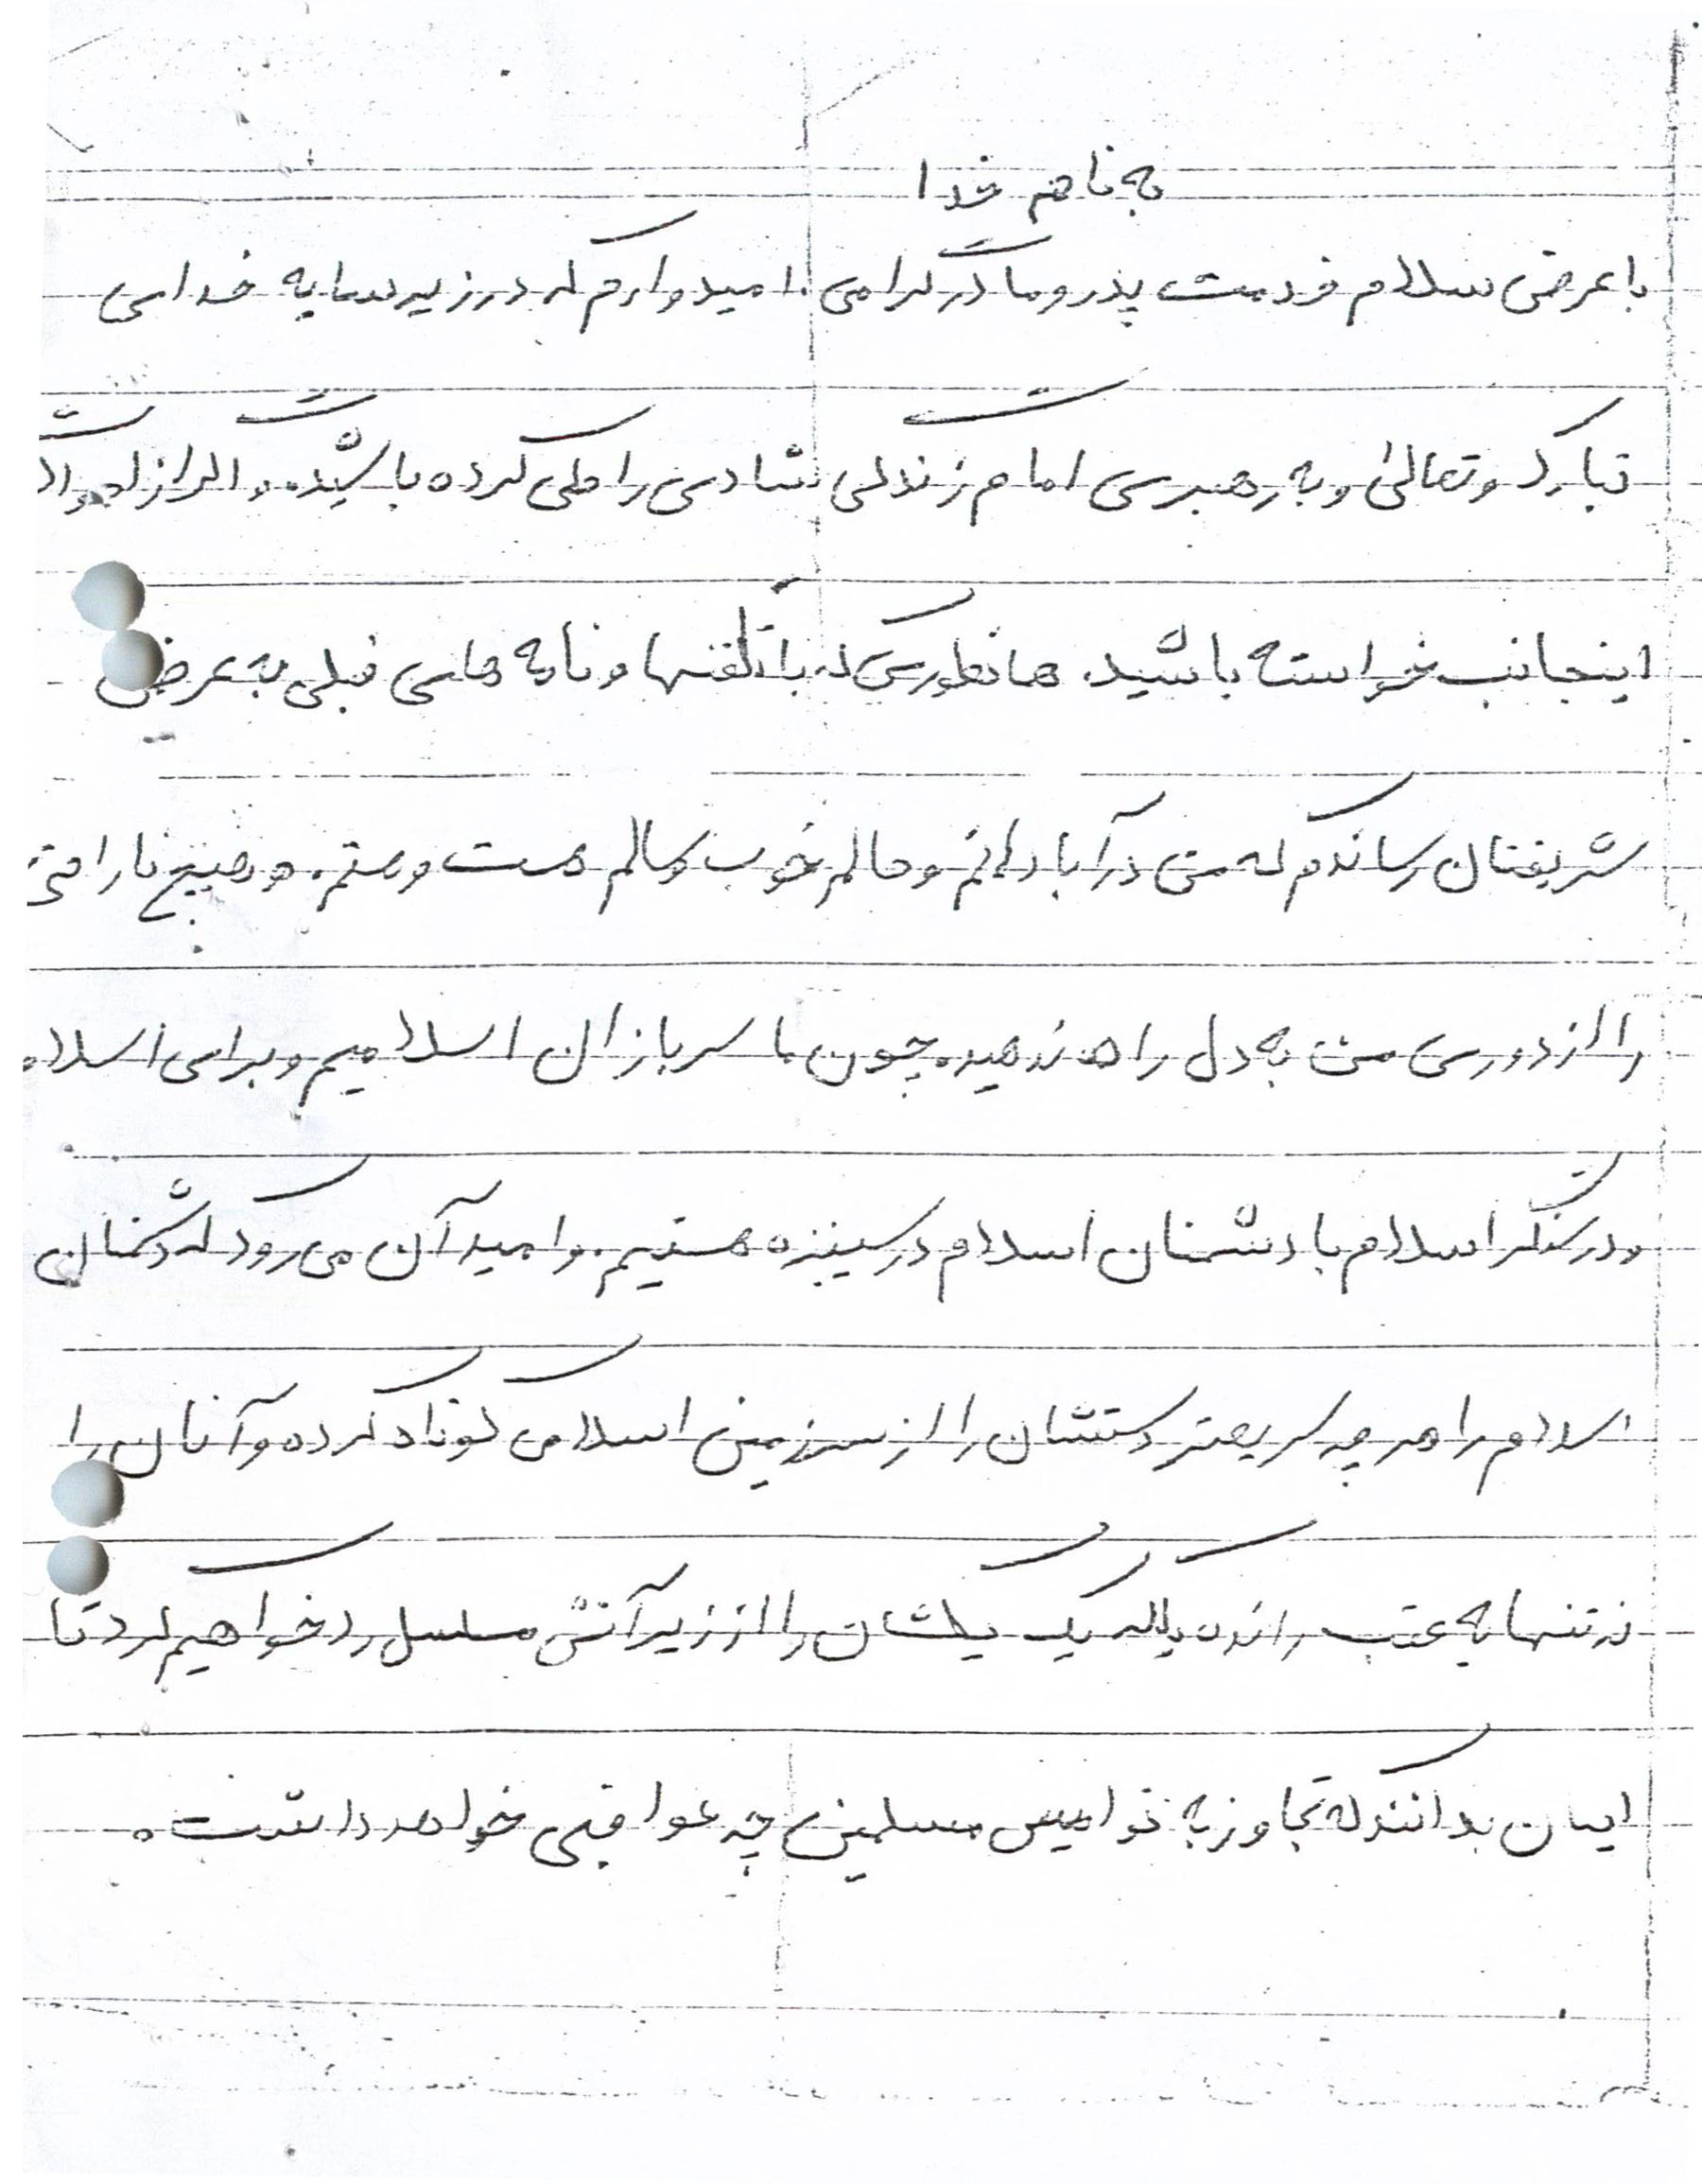 به نام خدا
با عرض سلام خدمت پدر و مادر گرامی. امیدوارم که در زیر سایه خدای
تبارک و تعالیٰ و به رهبری امام زندگی شادی را طی کرده باشید. و اگر از احوالات
اینجانب خواسته باشید. همانطوری که با تلفنها و نامه های قبلی به عرض
شریفتان رساندم که من در آبادانم و حالم خوب و سالم هست و هستم. و هیچ ناراحتی
را از دوری من به دل راه ندهید. چون ما سربازان اسلامیم و برای اسلام
و در سنگر اسلام با دشمنان اسلام در ستیزه هستیم. و امید آن می رود که دشمنان
اسلام را هر چه سریعتر دستشان را از سرزمین اسلامی کوتاه کرده و آنان را
نه تنها به عقب رانده بلکه یک یکشان را از زیر آتش مسلسل رد خواهیم کرد تا
ایشان بدانند که تجاوز به نوامیس مسلمین چه عواقبی خواهد داشت.